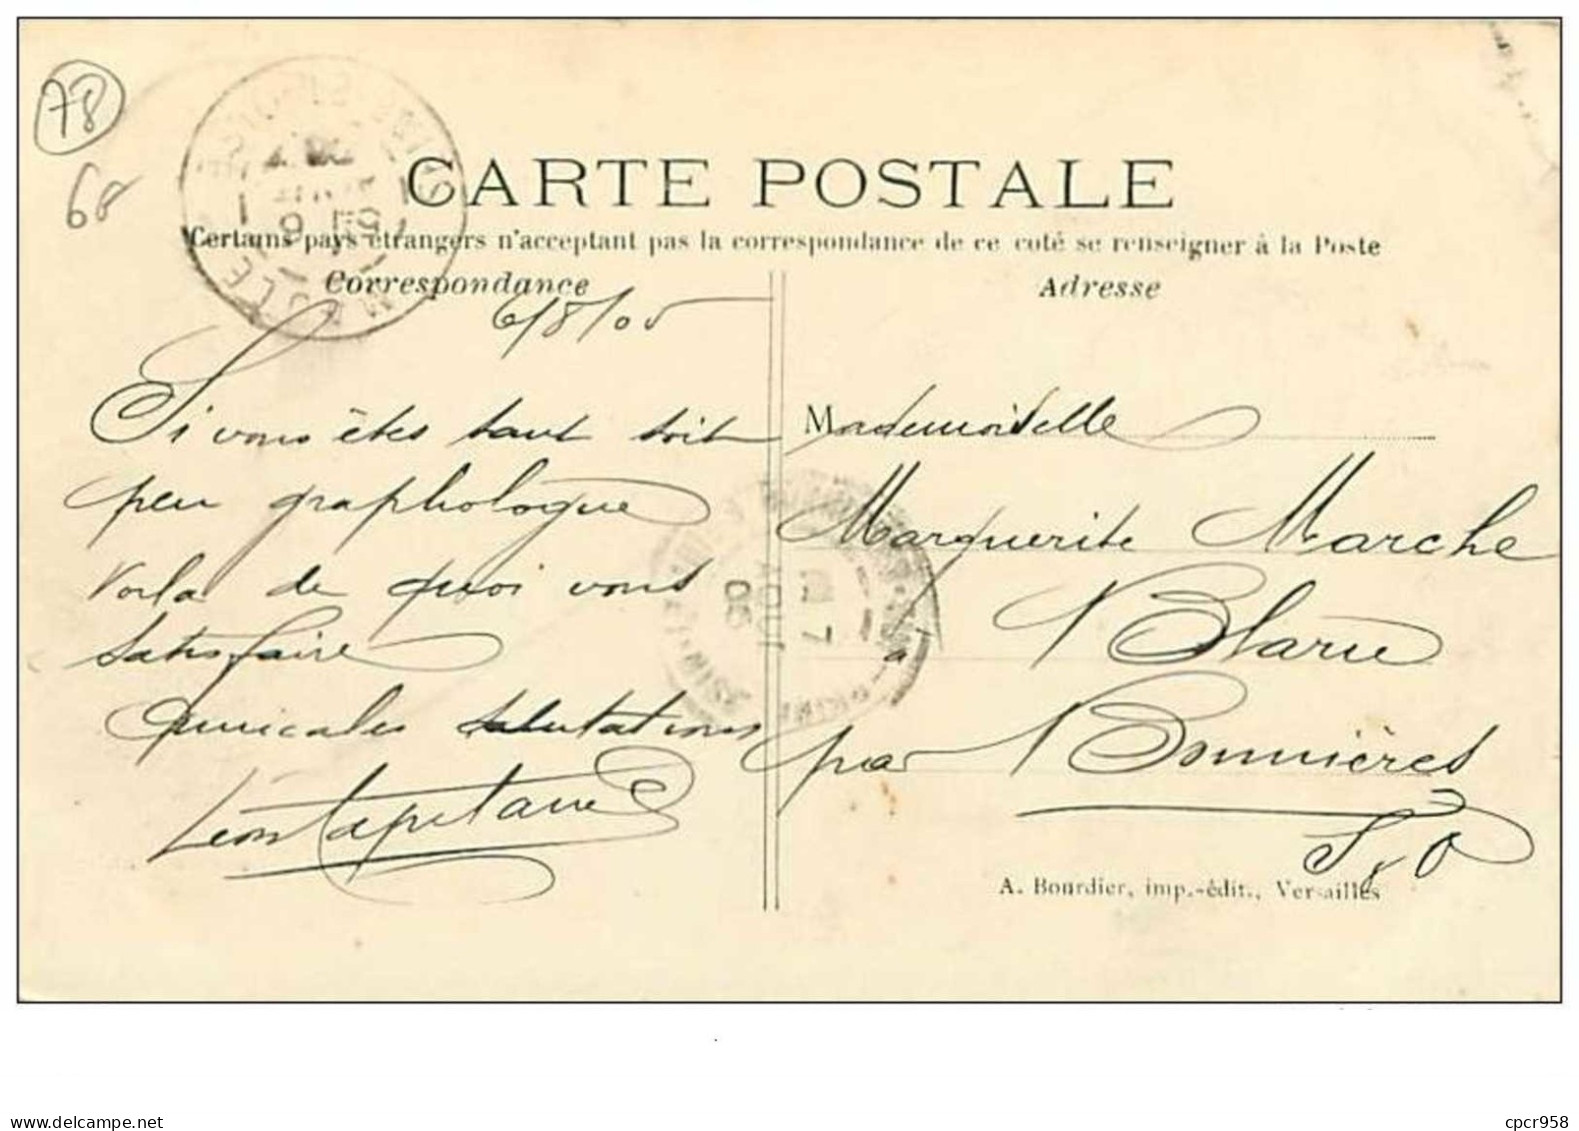 78
60
CARTE POSTALE
Certains pays étrangers n'acceptant pas la correspondance de ce coté se renseigner à la Poste
Correspondance
Adresse
6/8/05
Si vous êtes tant soit
peu graphologue
Voila de quoi vous
satisfaire
Amicales salutations
Léon Capitaine
Mademoiselle
Marguerite Marche
à Blaru
par Bonnières
S & O
A. Bourdier, imp.-édit., Versailles
E 7
AOUT
05
cpcr958